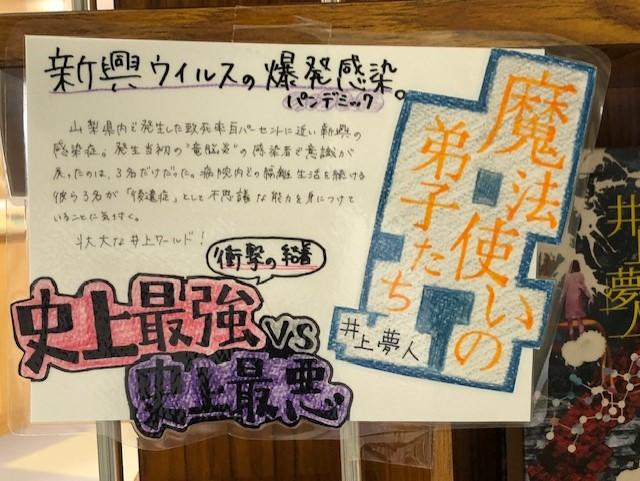 新興ウイルスの爆発感染。
パンデミック
山梨県内で発生した致死率百パーセントに近い新興の
感染症。発生当初の"竜脳炎"の感染者で意識が
戻ったのは、3名だけだった。病院内での隔離生活を続ける
彼ら3名が「後遺症」として不思議な能力を身につけて
いることに気付く。
壮大な井上ワールド!
衝撃の結着
史上最強
VS
史上最悪
魔法使いの
弟子たち
井上夢人
井上夢人